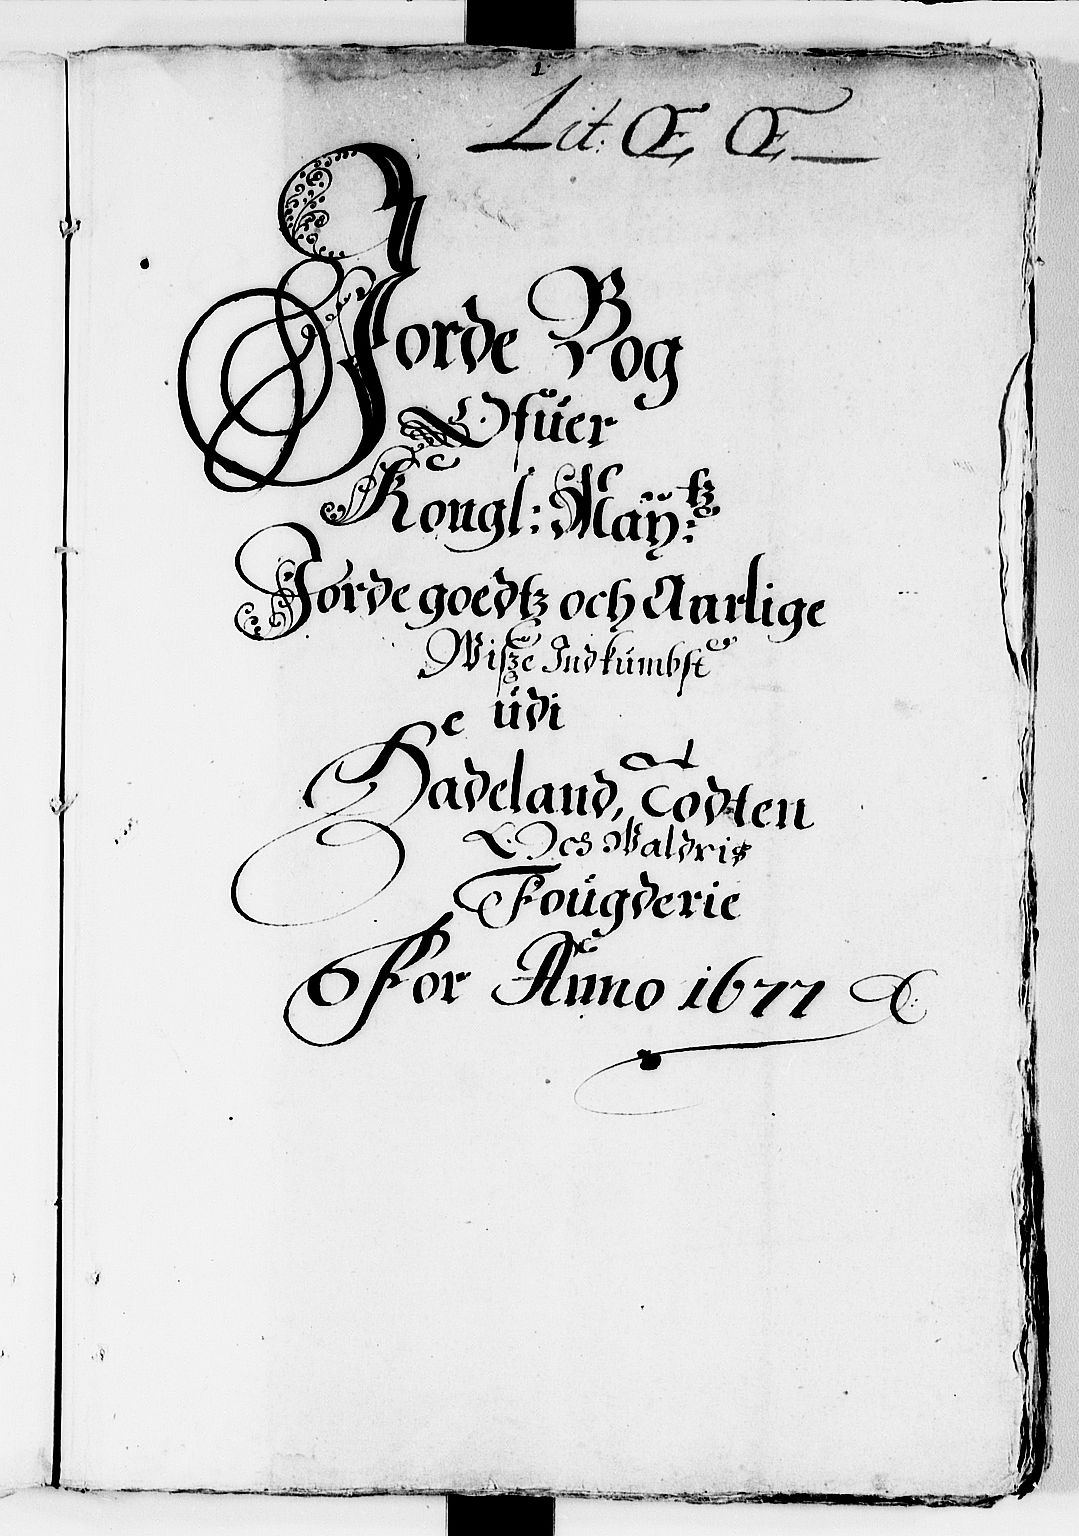 1.
Lit: Œ Œ
Jorde Bog
Ofüer
Kongl: Maÿ:tz
Jorde goedtz och Aarlige
Wisze Indkümbst
üdi
Hadeland, Todten
Och Waldris
Foügderie
For Anno 1677